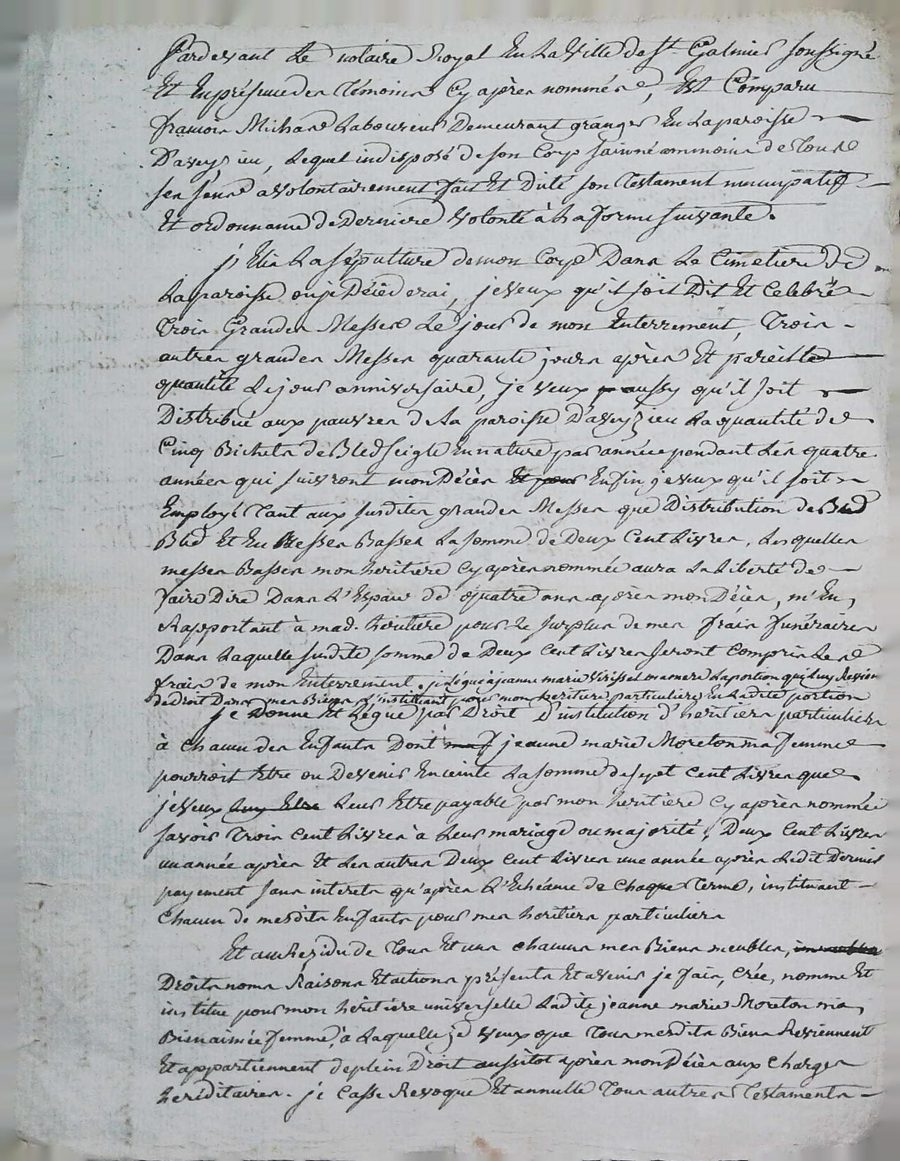 Pardevant Le notaire Royal En La Ville de St Galmier soussigné
Et En présence des Témoins Cy après nommés, Est Comparu
françois Michard Laboureur Demeurant granger En La paroisse
D'aveysieu, Lequel indisposé de son Corp sain néammoins de tous
ses sens a volontairement fait Et Dicté son Testament nuncupatif
Et ordonnance de Derniere Volonté à La forme suivante.
j'Elis La sépulture de mon Corps Dans Le Cimetiere de
La paroisse ou je Décéderai, je veux qu'il soit Dit Et Celebré
Trois Grandes Messes Le jour de mon Enterrement, Trois
autres grandes Messes quarante jours après Et pareille
quantité Le jour anniversaire, je veux aussy qu'il soit
Distribué aux pauvres de La paroisse D'aveyzieu La quantité de
Cinq Bichets de Bled seigle En nature par année pendant Les quatre
années qui suivront mon Décès Et pour Enfin je veux qu'il soit
Employé Tant aux susdites grandes Messes que Distribution de Bled
Bled Et En Messes Basses La somme de Deux Cent Livres, Lesquelles
messes Basses mon heritiere Cy après nommée aura La Liberté de
faire Dire Dans L'Espace de quatre ans après mon Décès, m'En
Rapportant à mad. heritiere pour Le surplus de mes frais funéraires
Dans Laquelle susdite somme de Deux Cent Livres seront Compris Les
frais de mon Enterrement. je Légue à jeanne marie mamere La portion qui Luy Revient
de Droit Dans mes Biens L'instituant pour mon heritiere particuliere En Ladite portion
je Donne Et Légue par Droit D'institution d'heritiers particuliers
à chacun des Enfants Dont jeanne marie Moreton ma femme
pourroit Etre ou Devenir Enceinte La somme de sept Cent Livres que
je veux Luy Etre Leur Etre payable par mon heritiere Cy après nommée
savoir Trois Cent Livres à Leur mariage ou majorité, Deux Cent Livres
un année après Et Les autres Deux Cent Livres une année après Ledit Dernier
payement sans interets qu'après L'Echéance de Chaque Terme, instituant
Chacun de mesdits Enfants pour mes heritiers particuliers
Et au Residu de Tous Et uns chacuns mes Biens meubles, immeubles
Droits noms Raisons Et actions présents Et avenir je fais, Crée, nomme Et
institue pour mon héritiere universelle Ladite jeanne marie Moreton ma
Bienaimée femme, à Laquelle je veux que Tous mesdits Biens Reviennent
Et appartiennent de plein Droit aussitot après mon Décès aux Charges
héréditaires. je Casse Revoque Et annulle Tous autres Testaments